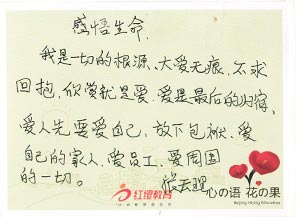 感悟生命.
我是一切的根源、大爱无痕、不求
回抱,欣赏就是爱.爱是最后的归宿,
爱人先要爱自己,放下包袱.爱
自己的家人,爱员工,爱周围
的一切。
张天
心の语 花の果
红缨教育